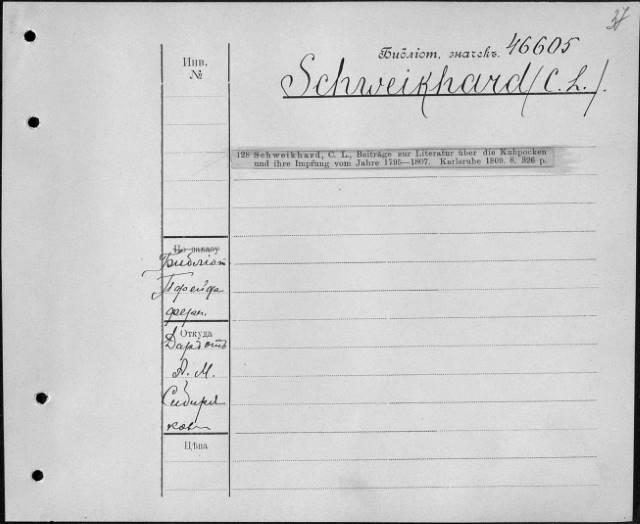 37
Библіот. значекъ. 46605
Инв.
№
Schweikhard (C. L.).
128 Schweikhard, C. L., Beiträge zur Literatur über die Kuhpocken
und ihre Impfung vom Jahre 1795—1807. Karlsruhe 1809. 8. 326 p.
По заказу
Библіот
Пфейф
фер.
Откуда
Даръ отъ
А. М.
Сибиря
кова
Цѣна